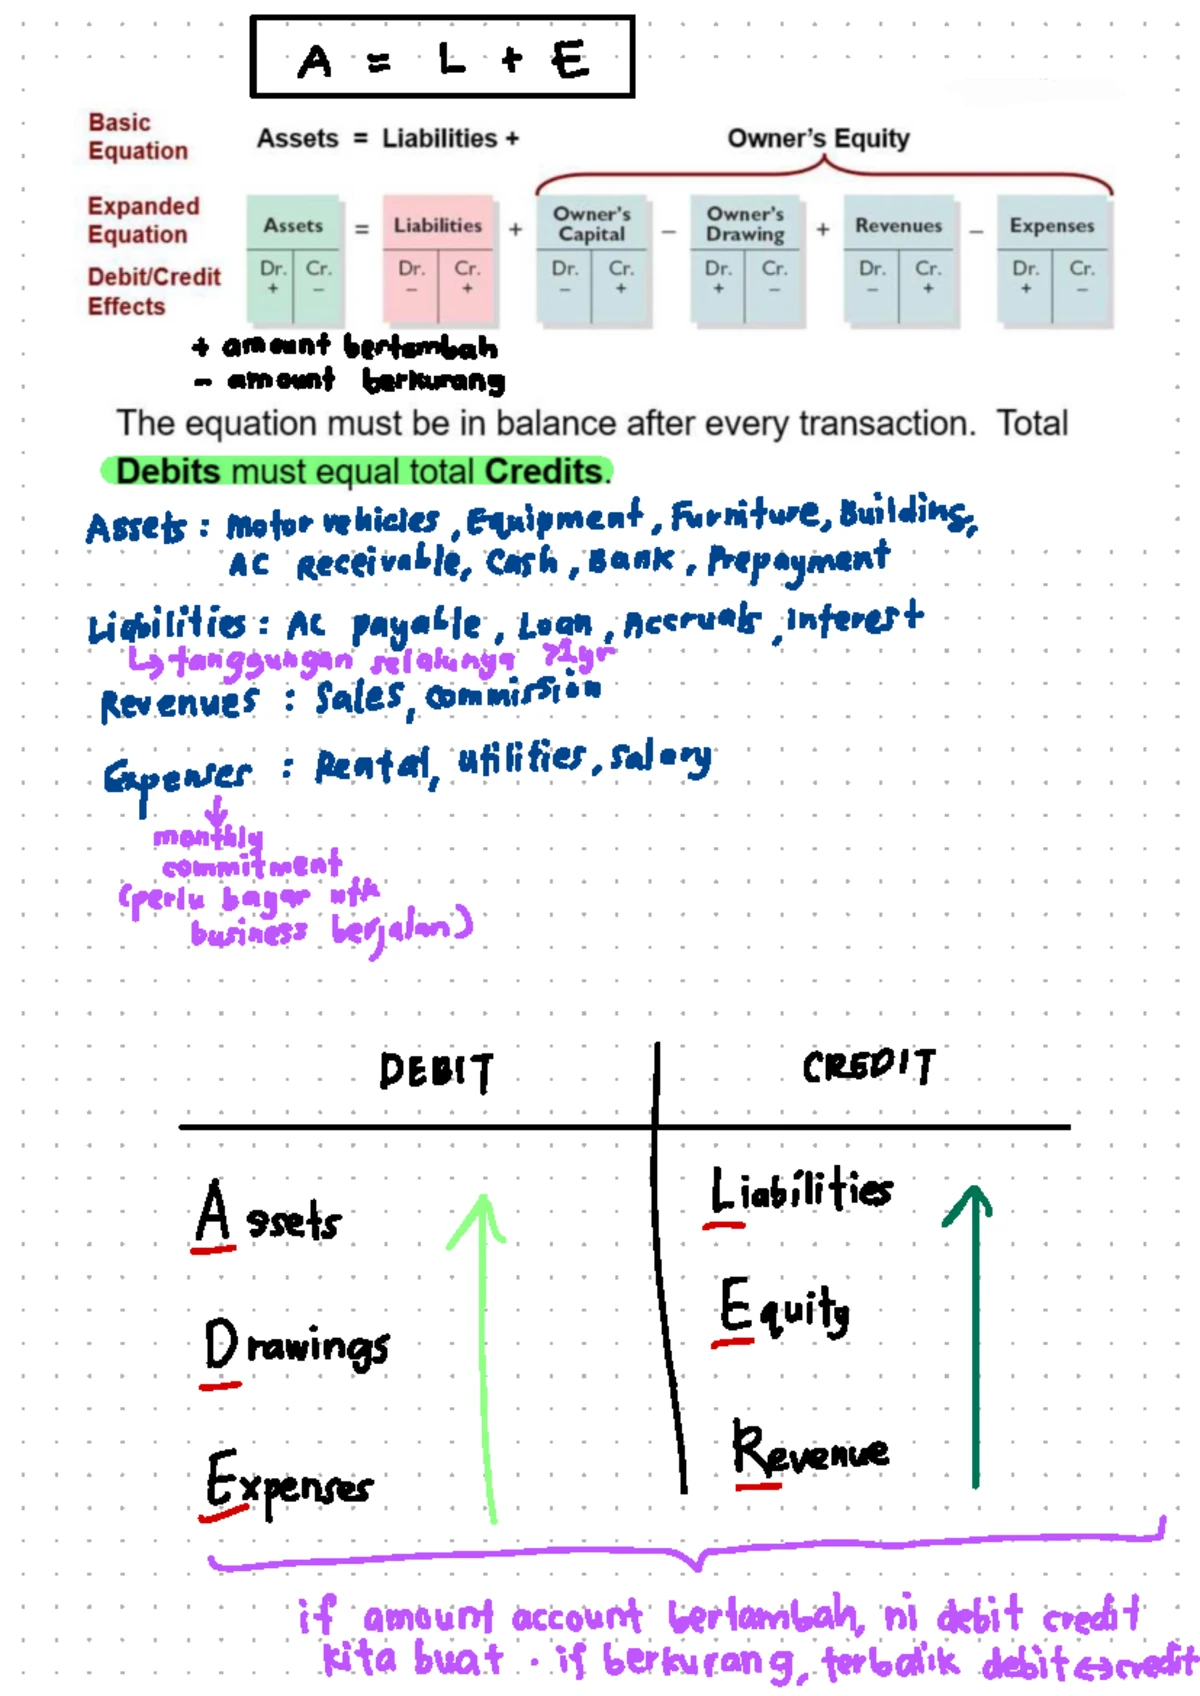 A = L + E
Basic Equation
Assets = Liabilities + Owner's Equity
Expanded Equation
Assets = Liabilities + Owner's Capital – Owner's Drawing + Revenues – Expenses
Debit/Credit Effects
Dr. Cr. Dr. Cr. Dr. Cr. Dr. Cr. Dr. Cr. Dr. Cr.
+ – – + – + + – – + + –
+ amount bertambah
- amount berkurang
The equation must be in balance after every transaction. Total
Debits must equal total Credits.
Assets : Motor vehicles, Equipment, Furniture, Building,
AC Receivable, Cash, Bank, Prepayment
Liabilities : AC payable, Loan, Accruals, interest
↳ tanggungan selalunya >1yr
Revenues : Sales, commission
Expenses : Rental, utilities, salary
↓
monthly
commitment
(perlu bayar utk
business berjalan)
DEBIT CREDIT
Assets Liabilities
Drawings Equity
Expenses Revenue
if amount account bertambah, ni debit credit
kita buat . if berkurang, terbalik debit↔credit